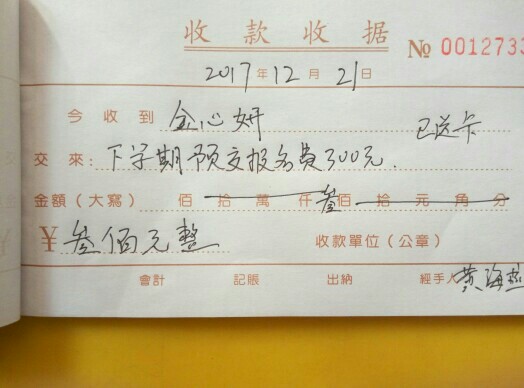 收款收据 № 0012733
2017年12月21日
今收到 金心妍 已送卡
交來：下学期预交报名费300元.
金額（大寫） 佰拾萬仟叁佰拾元角分
¥ 叁佰元整 收款單位（公章）
會計 記賬 出納 經手人 黄海燕